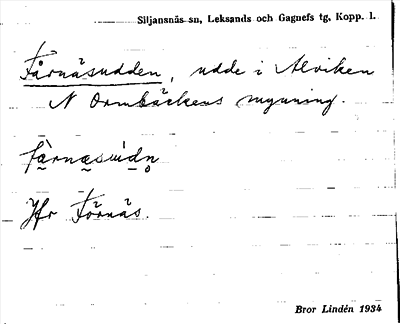 Siljansnäs sn, Leksands och Gagnefs tg, Kopp. l.
Färnäsudden, udde i Alviken
N Ormbäckens mynning.
Jfr Färnäs.
Bror Lindén 1934